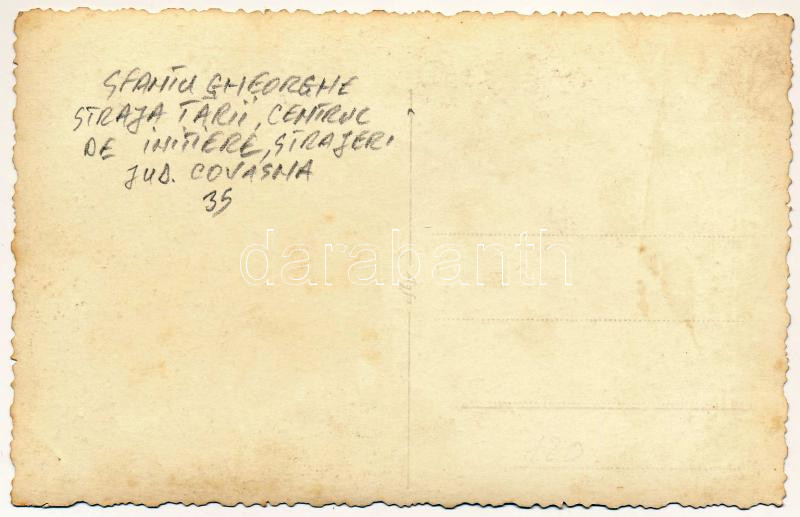 SFANTU GHEORGHE
STRAJA TĂRII, CENTRUL
DE INITIERE, STRAJERI
JUD. COVASNA
35
darabanth
120